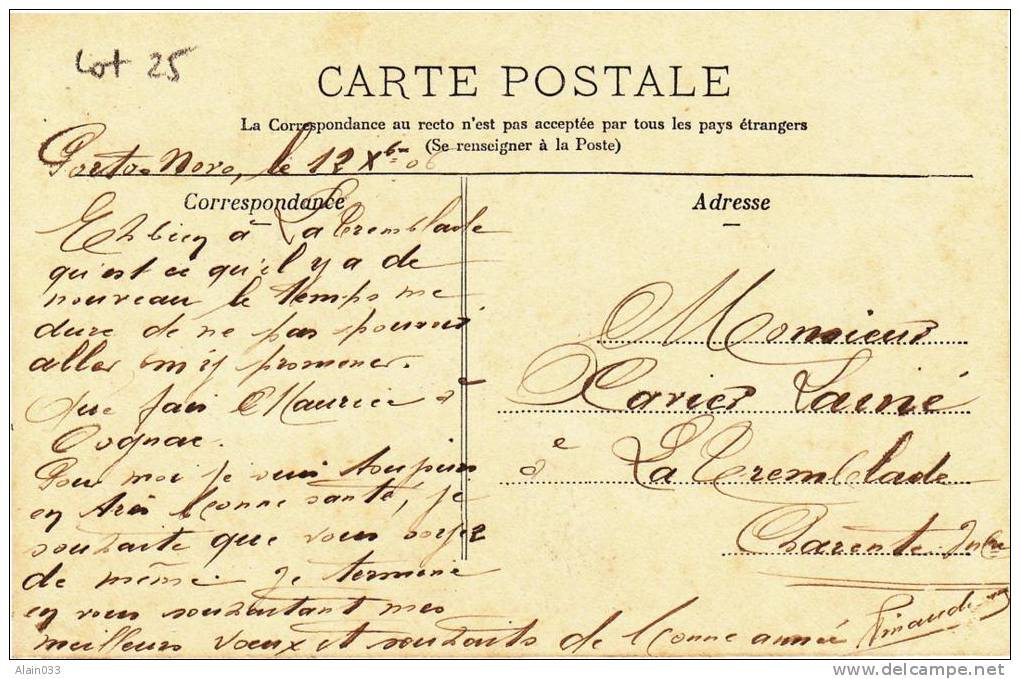 Lot 25
CARTE POSTALE
La Correspondance au recto n'est pas acceptée par tous les pays étrangers
(Se renseigner à la Poste)
Porto-Novo, le 12 Xbre 06
Correspondance
Eh bien à La Tremblade
qu'est ce qu'il y a de
nouveau le temps me
dure de ne pas pouvoir
aller m'y promener.
Que fais Maurice à
Cognac.
Pour moi je suis toujours
en très bonne santé, je
souhaite que vous soyez
de même. Je termine
en vous souhaitant mes
meilleurs vœux et souhaits de bonne année
Adresse
Monsieur
Xavier Lainé
à La Tremblade
Charente Infre
Alain033
www.delcampe.net